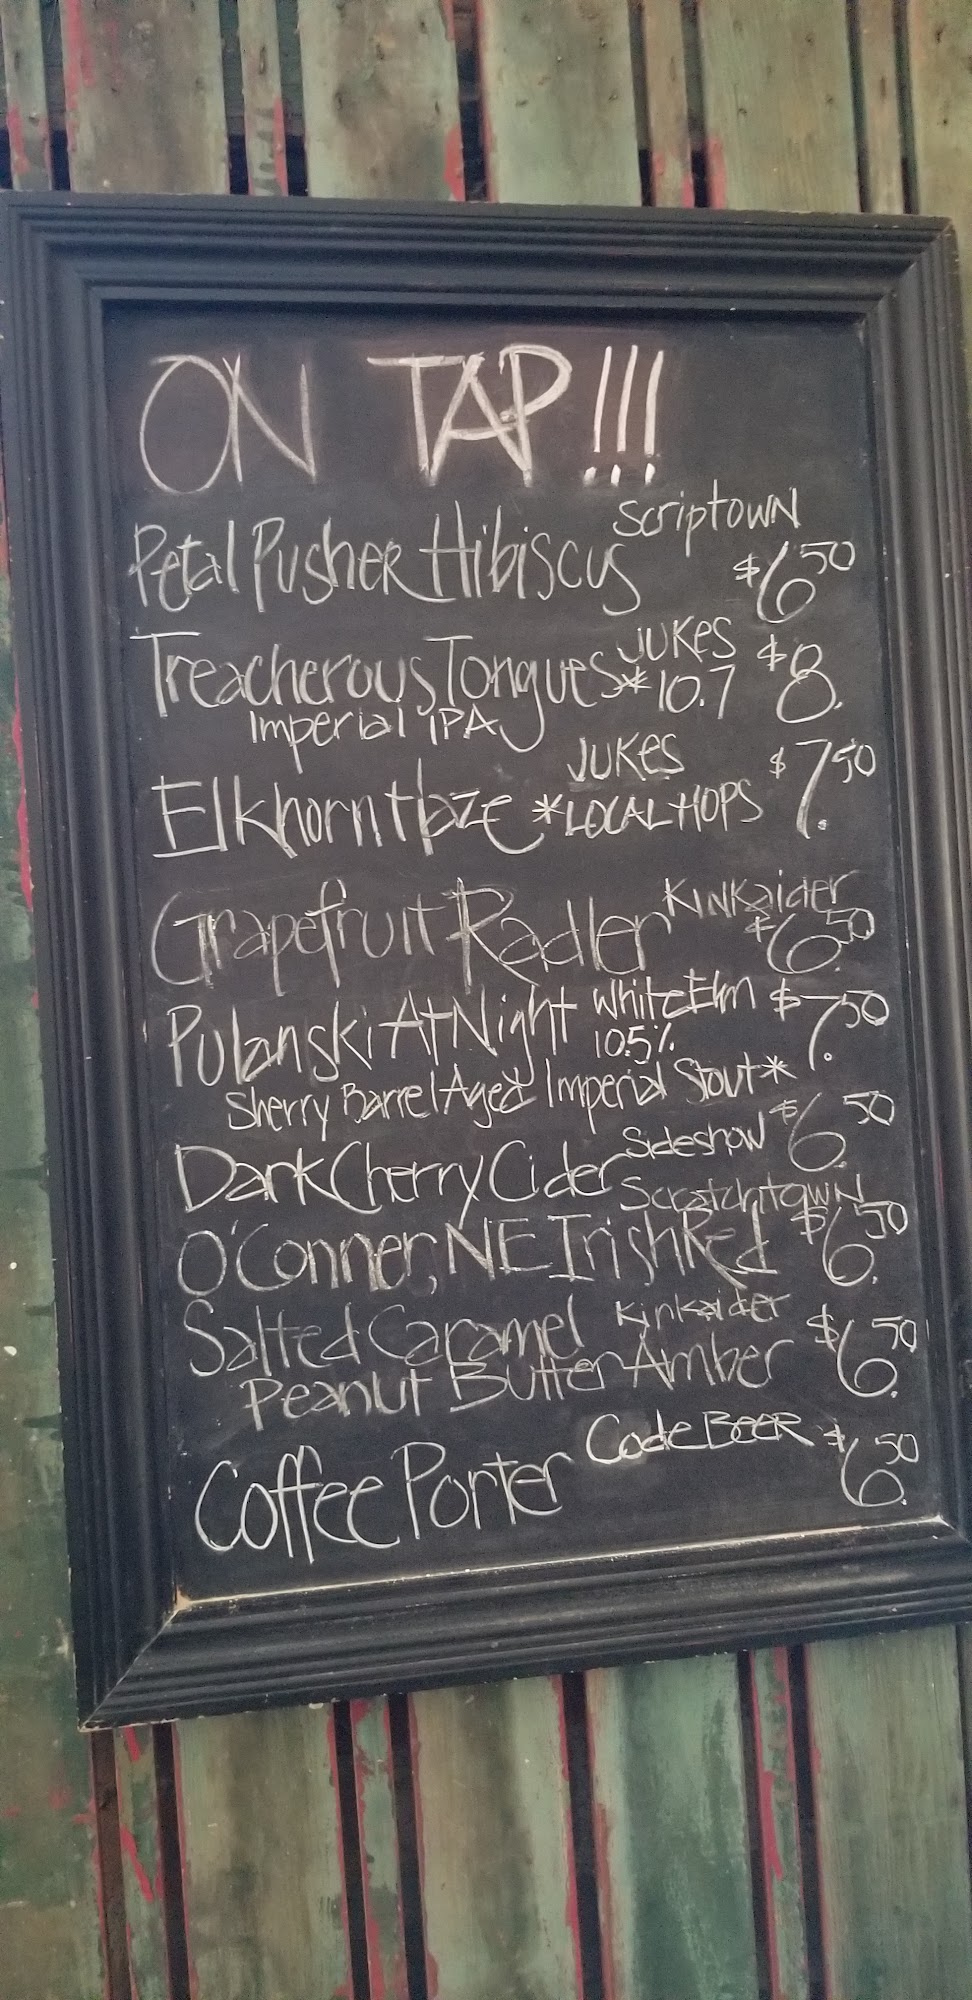 ON TAP!!!
Scriptown
Petal Pusher Hibiscus $6.50
Treacherous Tongues JUKES $8.
Imperial IPA *10.7
JUKES
Elkhorn Haze *LOCAL HOPS $7.50
Grapefruit Radler Kinkaider $6.50
Pulanski At Night White Elm $7.50
10.5%
Sherry Barrel Aged Imperial Stout*
Dark Cherry Cider Sideshow $6.50
Scratchtown
O'Conner, NE Irish Red $6.50
Salted Caramel Kinkaider $6.50
Peanut Butter Amber
Coffee Porter Code BEER $6.50